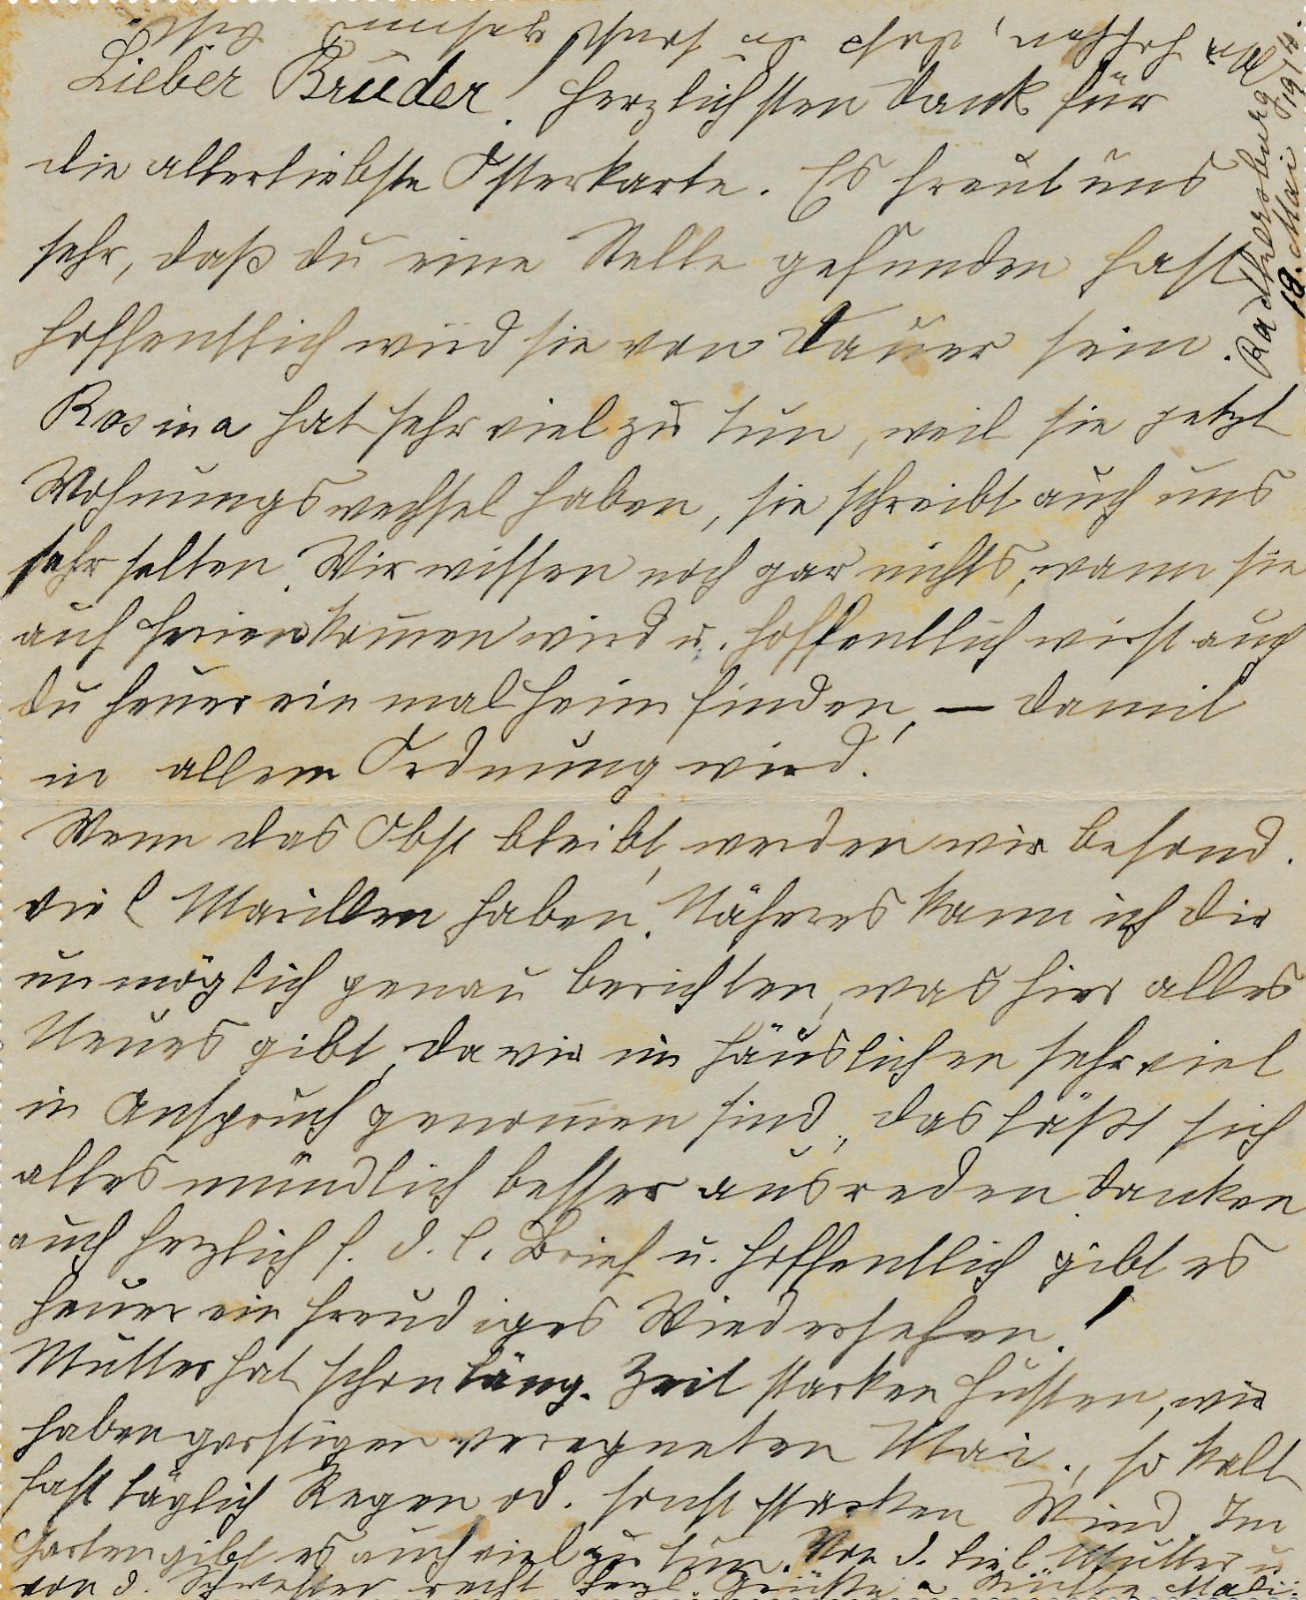 Radkersburg
19. Mai 1914.
Wir hoffen, daß du
Lieber Bruder! Herzlichsten Dank für
die allerliebste Osterkarte. Es freut uns
sehr, daß du eine Stelle gefunden hast
hoffentlich wird sie von Dauer sein.
Rosina hat sehr viel zu tun, weil sie jetzt
Wohnungswechsel haben, sie schreibt auch uns
sehr selten. Wir wissen noch gar nichts, wann sie
auf Ferien kom̄en wird u. hoffentlich wirst auch
du heuer einmal heim finden, — damit
in allem Ordnung wird.
Wenn das Obst bleibt, werden wir besond.
viel Marillen haben. Näheres kann ich dir
unmöglich genau berichten, was hier alles
Neues gibt, da wir im häuslichen sehr viel
in Anspruch genom̄en sind, das läßt sich
alles mündlich besser ausreden. Danken
auch herzlich f. d. l. Brief u. hoffentlich gibt es
heuer ein freudiges Wiedersehen!
Mutter hat schon läng. Zeit starken Husten, wir
haben garstigen veregneten Mai., so kalt
fast täglich Regen od. sonst starken Wind. Im
Garten gibt es auch viel zu tun. Von d. lieb. Mutter u
von d. Schwester recht herzl. Grüße u Küsse Mali.